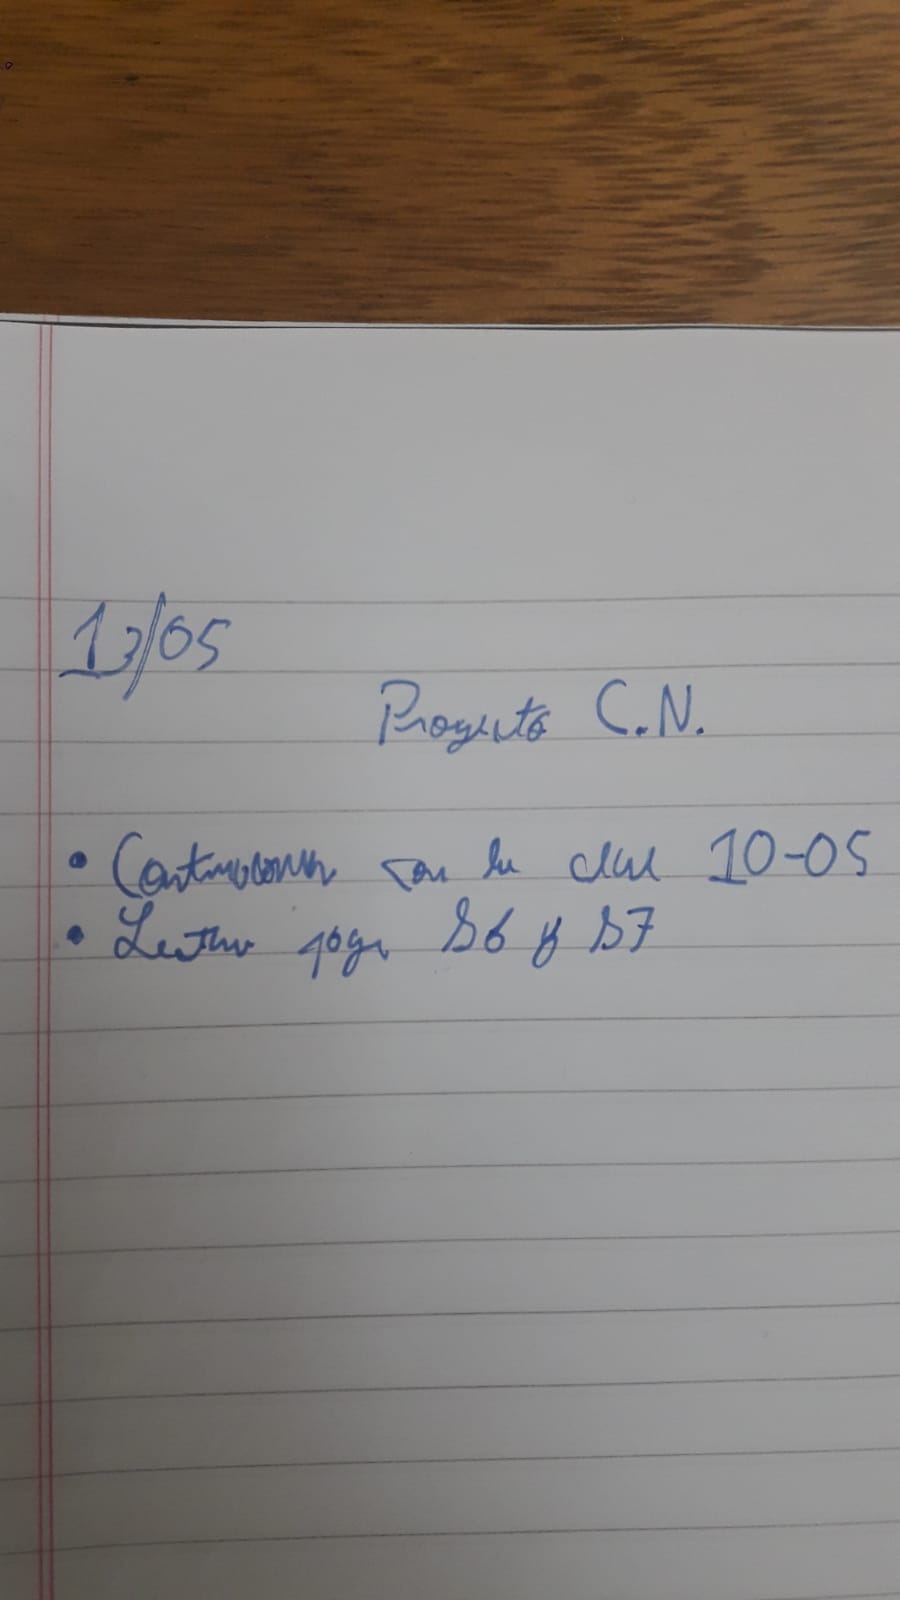 13/05
Proyecto C.N.
• Continuamos con la clase 10-05
• Lectura pág. 56 y 57